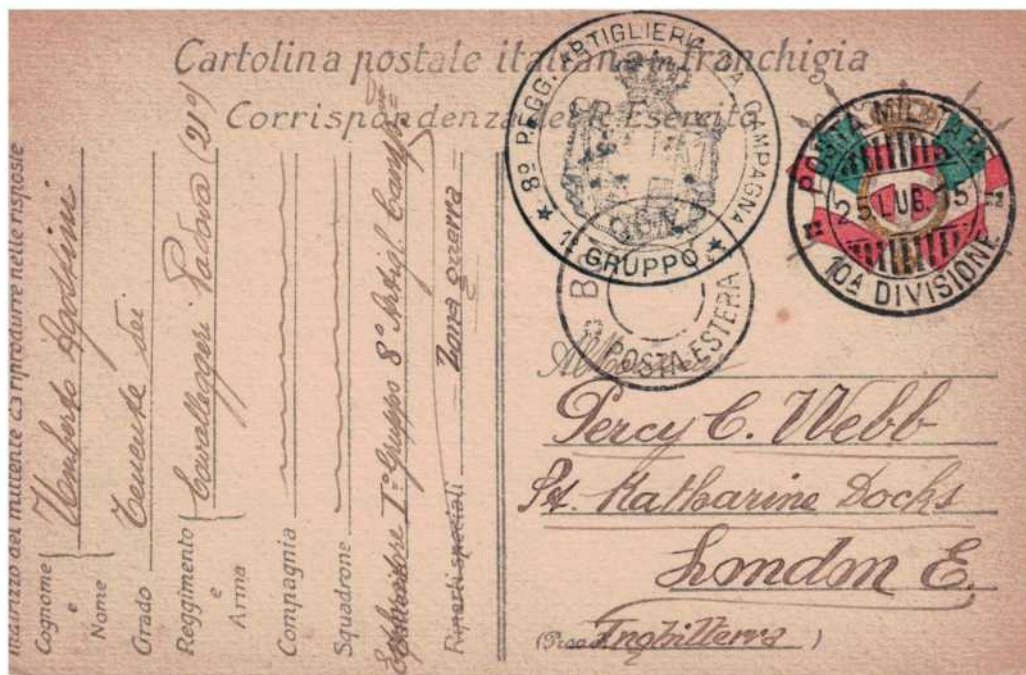 Cartolina postale italiana in franchigia
Corrispondenza del R. Esercito
★ 8º REGG. ARTIGLIERIA DA CAMPAGNA ★
1º GRUPPO
POSTA MILITARE
25.LUG.15
10A DIVISIONE
B
POSTA ESTERA
Percy C. Webb
St. Katharine Docks
London E.
Inghilterra
Indirizzo del mittente da riprodurre nelle risposte
Cognome e Nome Umberto Agostini
Grado Tenente dei
Reggimento e Arma Cavalleggeri Padova (21º)
Compagnia
Squadrone
1º Gruppo 8º Artigl. Camp
Riparti speciali Zona guerra